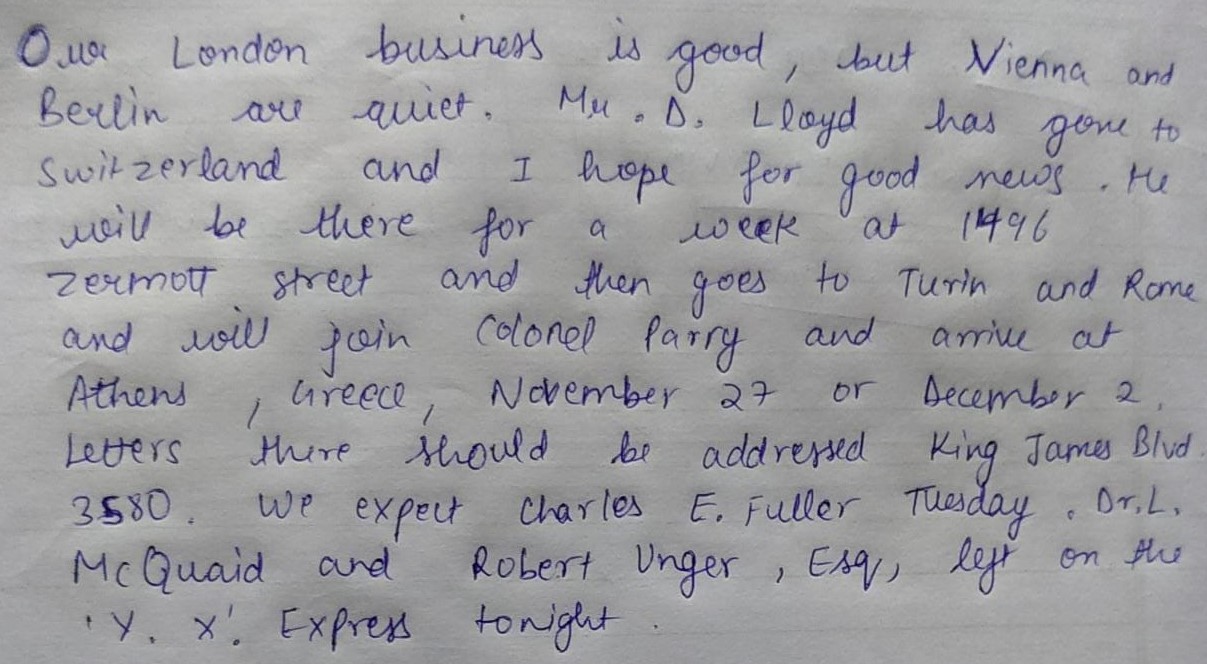 Our London business is good, but Vienna and
Berlin are quiet. Mr. D. Lloyd has gone to
Switzerland and I hope for good news. He
will be there for a week at 1496
Zermott street and then goes to Turin and Rome
and will join Colonel Parry and arrive at
Athens, Greece, November 27 or December 2.
Letters there should be addressed King James Blvd.
3580. We expect Charles E. Fuller Tuesday. Dr. L.
McQuaid and Robert Unger, Esq, left on the
'Y. X'. Express tonight.